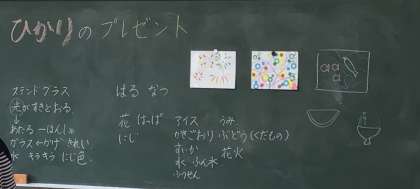 ひかりのプレゼント
ステンドグラス
光がすきとおる
↓
あたる
ガラス
かげ きれい
水 キラキラ にじ色
はる なつ
花 はっぱ
にじ
アイス うみ
かきごおり ぶどう(くだもの)
すいか 花火
水 ふん水
ふうせん